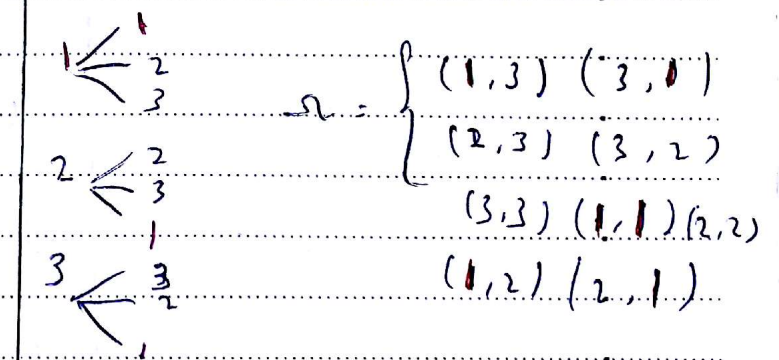 1
1
2
3
2
2
3
1
3
3
2
1
Ω = { (1,3) (3,1)
(2,3) (3,2)
(3,3) (1,1) (2,2)
(1,2) (2,1)